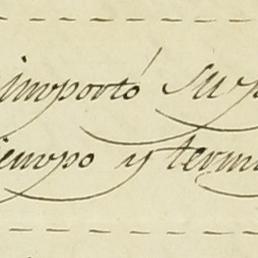 importó su
iempo y termi